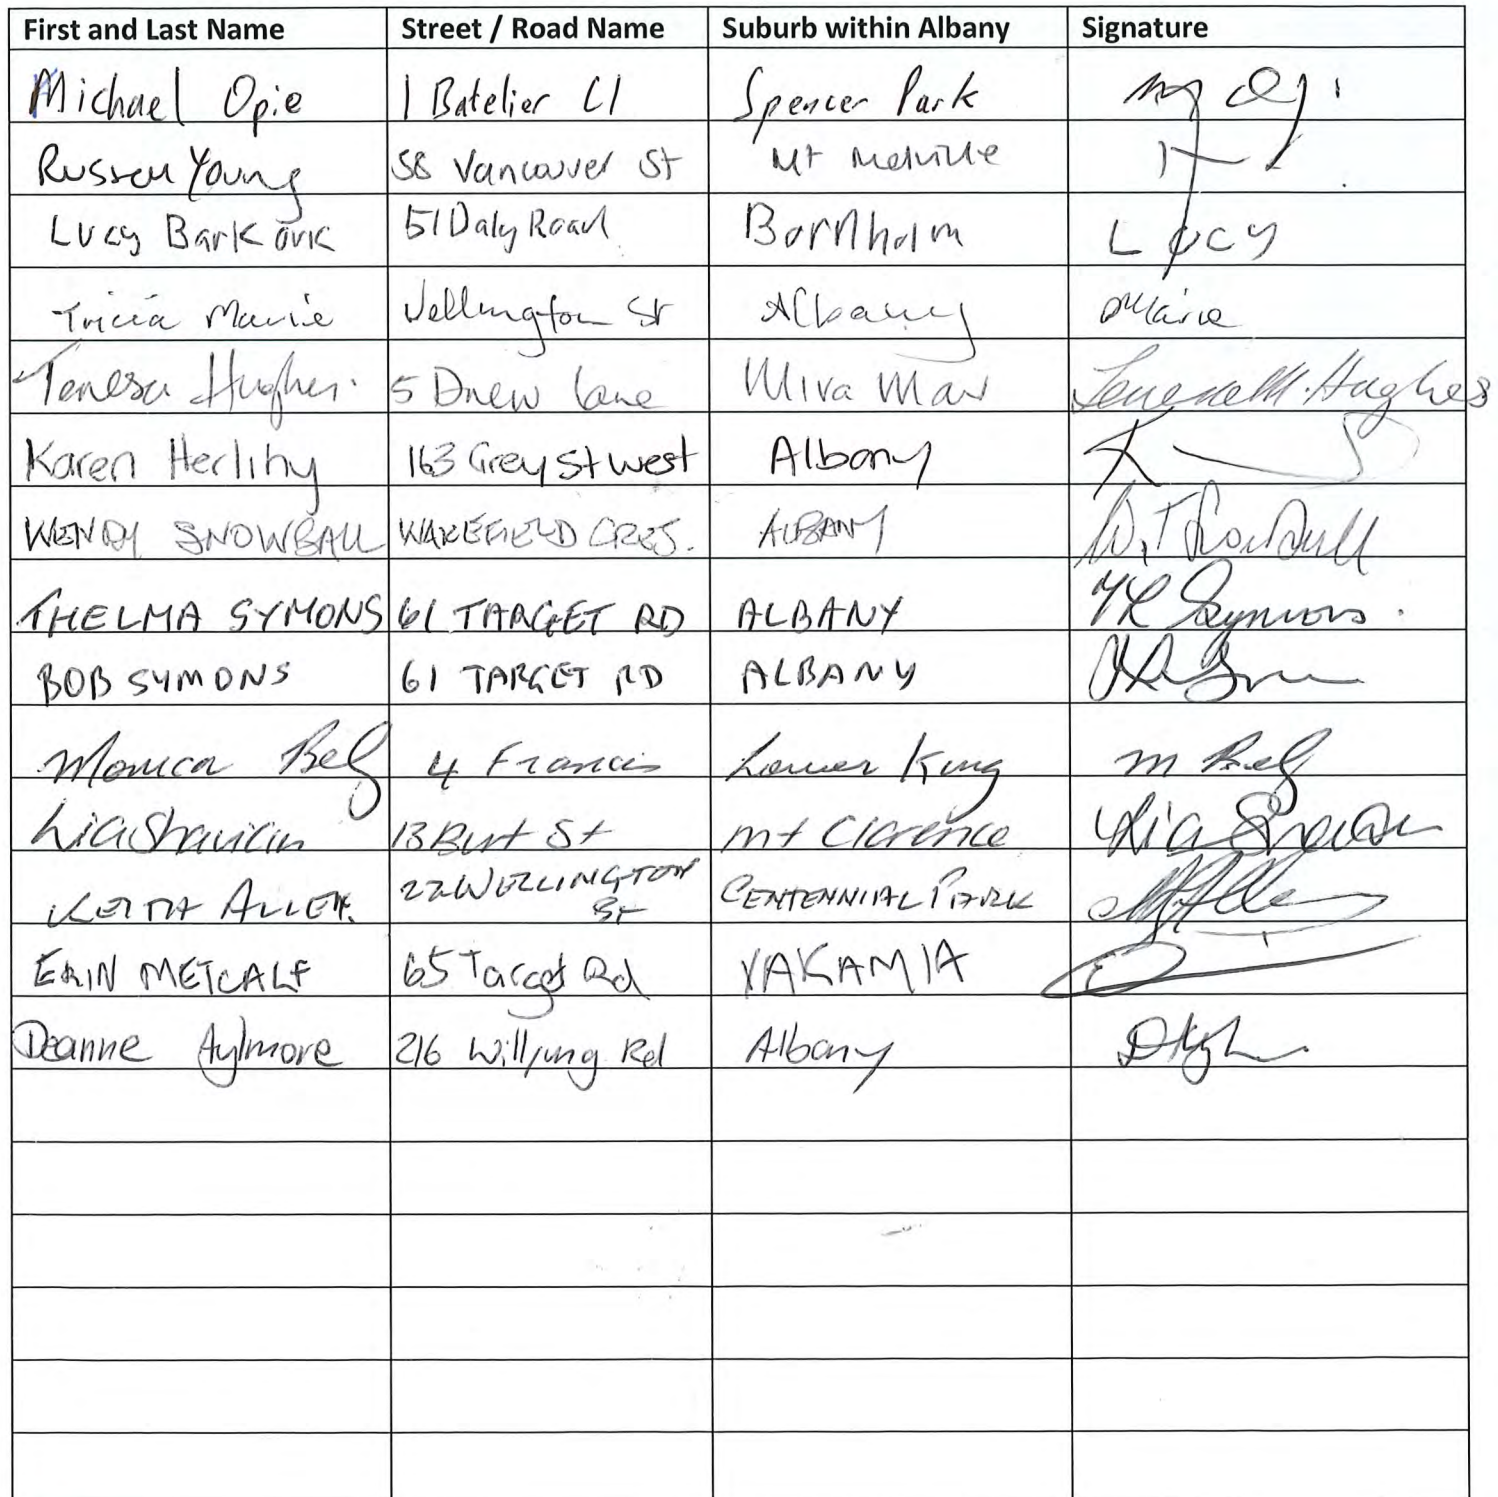 First and Last Name Street / Road Name Suburb within Albany Signature
Michael Opie 1 Batelier Cl Spencer Park
Russell Young 58 Vancouver St Mt Melville
Lucy Barkovic 51 Daly Road Bornholm Lucy
Tricia Marie Wellington St Albany Marie
Teresa Hughes. 5 Drew Lane Mira Mar Hughes
Karen Herlihy 163 Grey St West Albany
WENDY SNOWBALL WAKEFIELD CRES. ALBANY
THELMA SYMONS 61 TARGET RD ALBANY Symons.
BOB SYMONS 61 TARGET RD ALBANY
Monica 4 Francis Lower King m
13 Burt St Mt Clarence
KEITH ALLEN. 22 WELLINGTON ST CENTENNIAL PARK
ERIN METCALF 65 Target Rd YAKAMIA
Deanne Aylmore 216 Willyung Rd Albany